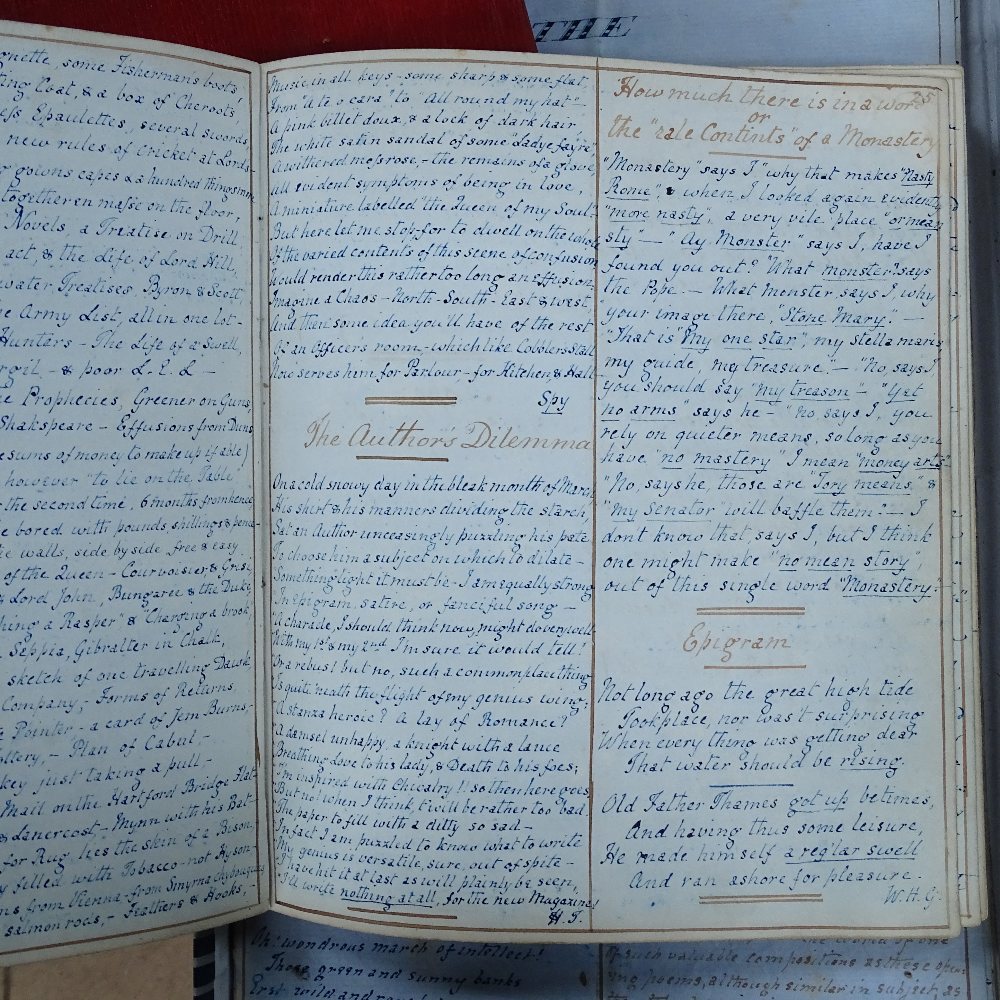 THE
gnette, some Fishermans boots
ting Coat, & a box of Cheroots
Epaulettes, several swords
new rules of cricket at Lords
gowns capes & a hundred things more
together en masse on the floor,
Novels, a Treatise on Drill
act, & the Life of Lord Hill,
water, Treatises, Byron & Scott,
Army List, all in one lot -
Hunters - The Life of a Swell,
rgil, - & poor L. E. L -
Prophecies, Greener on Guns,
Shakspeare - Effusions from Duns
sums of money to make up if able)
however "to lie on the Table
the second time, 6 months from hence
bored with pounds shillings & pence
walls, side by side, free & easy
of the Queen - Courvoisier & Grisi
& Lord John, Bungaree & the Duke
hing a Rasper" & Charging a brook,
Seppia, Gibralter in Chalk,
sketch of one travelling Dawk
Company, - Forms of Returns
Pointer - a card of Jem Burns,
ottery, - Plan of Cabul, -
key just taking a pull, -
Mail on the Hartford Bridge Flat -
& Lanercost - Mynn with his Bat -
for Rug, lies the skin of a Bison,
filled with Tobacco - not Hyson
ns from Vienna - from Smyrna chybouques
salmon rods, - Feathers & Hooks, -
Music in all keys - some sharp & some flat,
From "A te, o cara" to "All round my hat" -
A pink billet doux, & a lock of dark hair
The white satin sandal of some Ladye fayre,
A withered mossrose, - the remains of a glove,
All evident symptoms of being in love,
A miniature labelled "the Queen of my Soul"
But here let me stop - for to dwell on the whole
Of the varied contents of this scene of confusion
Would render this rather too long an effusion,
Imagine a Chaos - North - South - East & West
And then some idea you'll have of the rest
Of an Officer's room, - which like Cobblers Stall
Now serves him for Parlour, - for Kitchen, & Hall -
Spy
The Author's Dilemma
On a cold snowy day in the bleak month of March,
His shirt & his manners dividing the starch,
Sat an Author unceasingly puzzling his pate
To choose him a subject on which to dilate -
Something light it must be - I am equally strong
In epigram, satire, or fanciful song -
A charade, I should think now, might do very well
With my 1st & my 2nd I'm sure it would tell!
Or a rebus! but no, such a commonplace thing
Is quite 'neath the flight of my genius' wing;
A stanza heroic? A lay of Romance?
A damsel unhappy, a knight with a lance
Breathing Love to his lady, & Death to his foes;
I'm inspired with Chivalry!! so then here goes
But no! when I think, t'will be rather too bad,
The paper to fill with a ditty so sad -
In fact I am puzzled to know what to write
My genius is versatile, sure, out of spite -
I have hit it at last as will plainly be seen,
I'll write nothing at all, for the new Magazine!
H. T.
25
How much there is in a word
or
the "rale Contints" of a Monastery
"Monastery" says I "why that makes "Nasty
Rome", & when I looked again evidently
"more nasty", a very vile place "or mean
sty" - "Ay Monster" says I, have I
found you out? "What monster? says
the Pope. - What Monster, says I, why
your image there, "Stone Mary". -
"That is "My one star", my stella maris,
my guide, my treasure. - "No, says I
you should say "my treason" - "Yet
no arms" says he - "No, says I, you
rely on quieter means, so long as you
have "no mastery" I mean "money arts" -
"No, says he, those are "Tory means," &
"my Senator" will baffle them? - I
dont know that, says I, but I think
one might make "no mean story",
out of this single word "Monastery."
Epigram
Not long ago the great high tide
Took place, nor was't surprising
When every thing was getting dear
That water should be rising.
Old Father Thames got up betimes,
And having thus some leisure,
He made himself a reg'lar swell
And ran ashore for pleasure.
W. H. G.
Oh! wondrous march of intellect!
Those green and sunny banks
the world of one
of such valuable compositions as these open
ing poems, although similar in subject, as